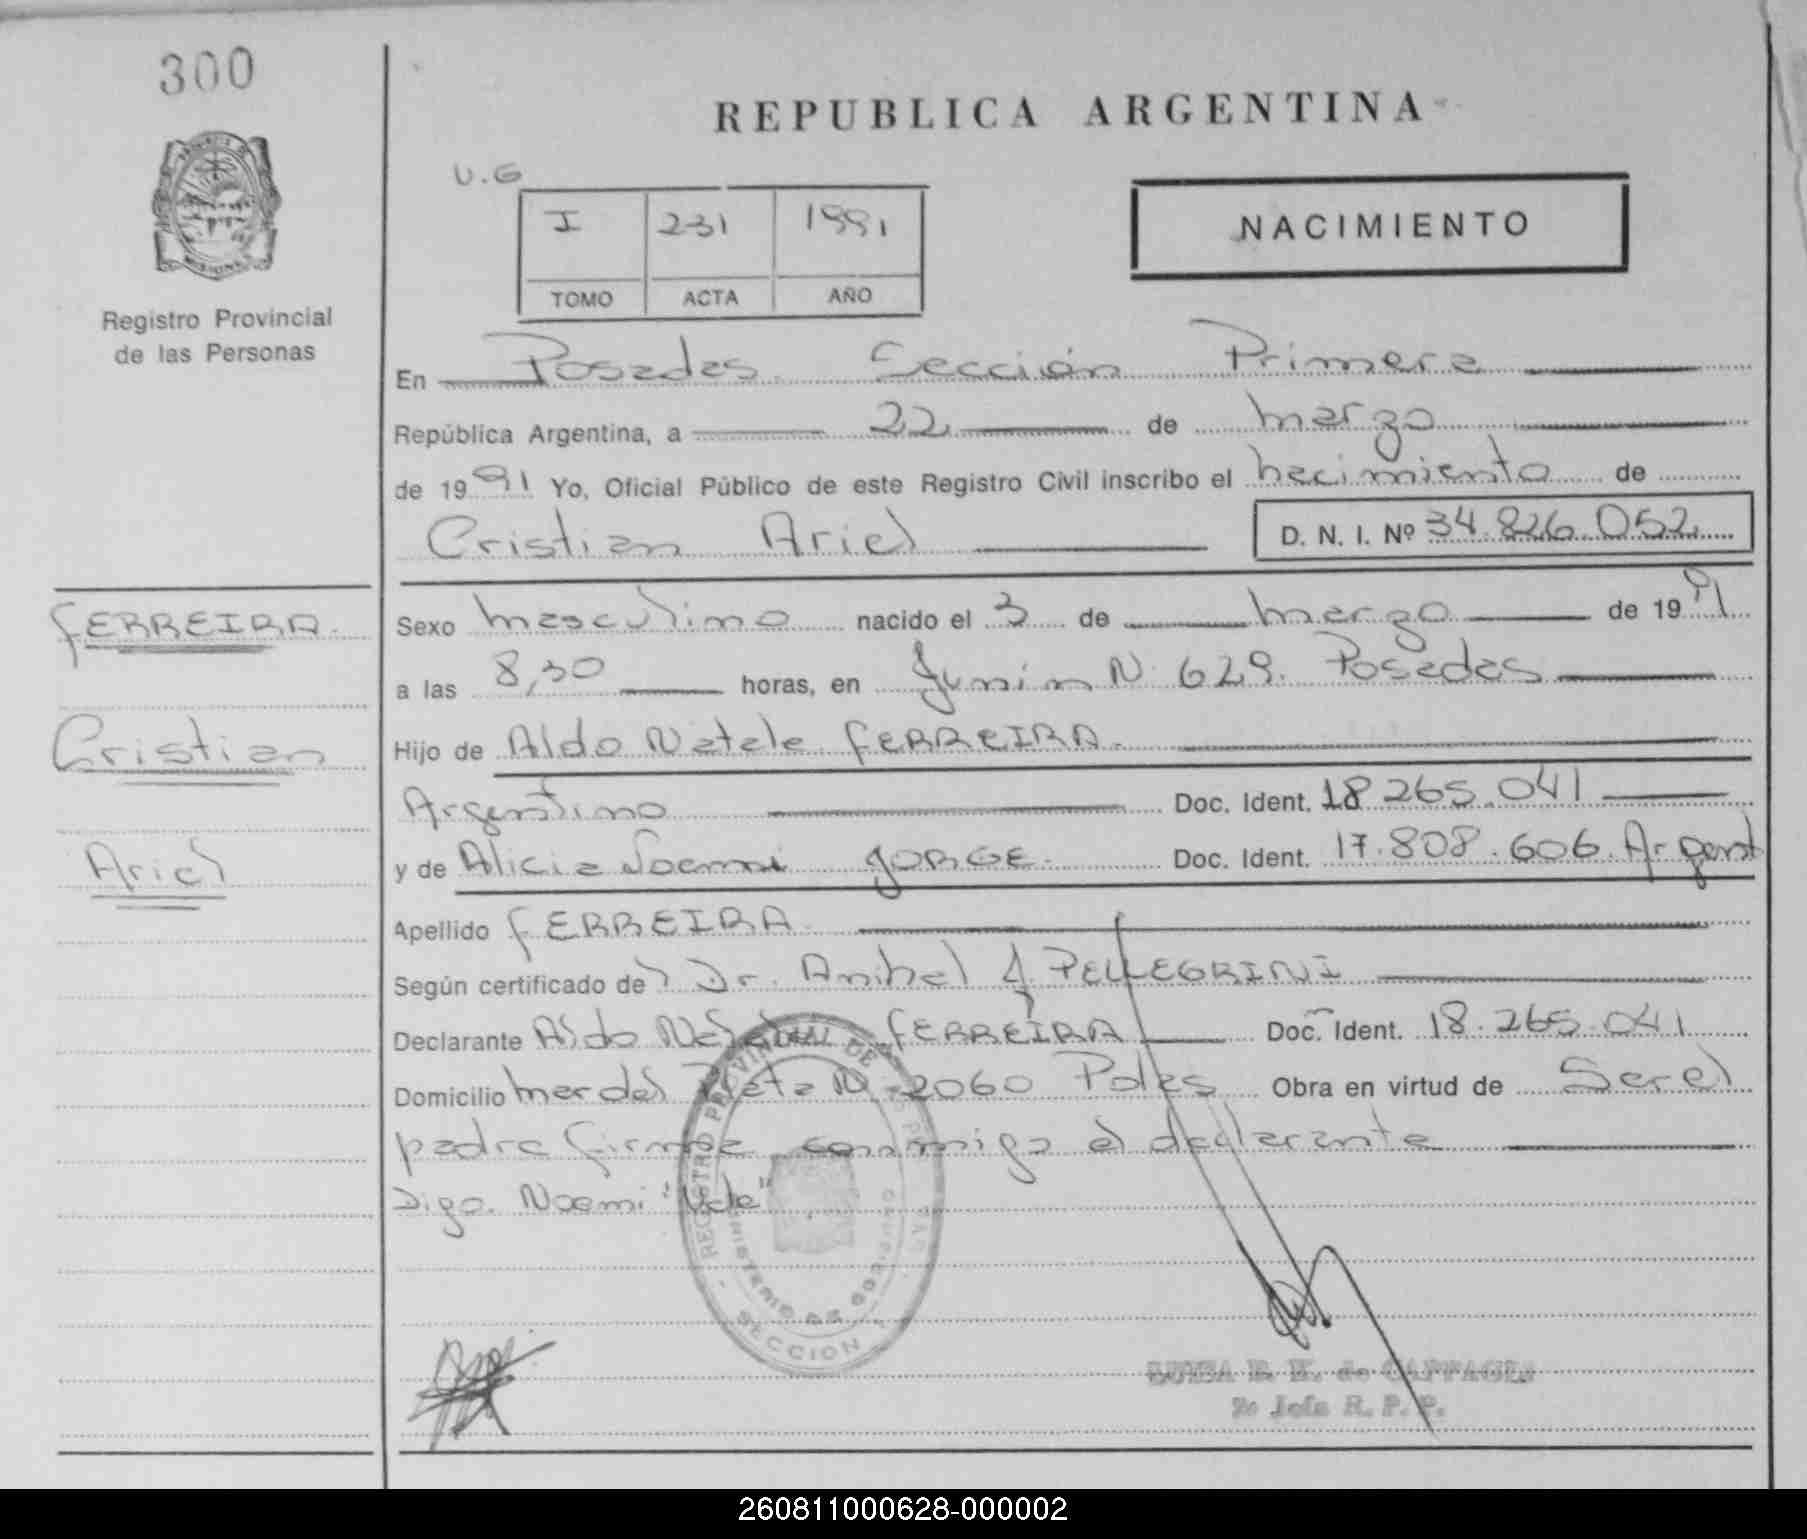 300
REPUBLICA ARGENTINA
U.G
I 231 1991
TOMO ACTA AÑO
NACIMIENTO
Registro Provincial
de las Personas
En Posadas Sección Primera
República Argentina, a 22 de marzo
de 1991 Yo, Oficial Público de este Registro Civil inscribo el nacimiento de
Cristian Ariel D. N. I. Nº 34.826.052
FERREIRA
Cristian
Ariel
Sexo masculino nacido el 3 de marzo de 1991
a las 8,30 horas, en Junín N 629. Posadas
Hijo de Aldo Natale FERREIRA
Argentino Doc. Ident. 18.265.041
y de Alicia Noemi JORGE Doc. Ident. 17.808.606. Argent
Apellido FERREIRA
Según certificado del Dr. Anibal J. PELLEGRINI
Declarante Aldo FERREIRA Doc. Ident. 18.265.041
Domicilio Mar del Plata N 2060 Obra en virtud de Ser el
padre firma conmigo el declarante
Digo. Noemi "Vale"
REGISTRO PROVINCIAL DE LAS
MINISTERIO DE GOBIERNO
SECCION 1
2º Jefe R. P. P.
260811000628-000002